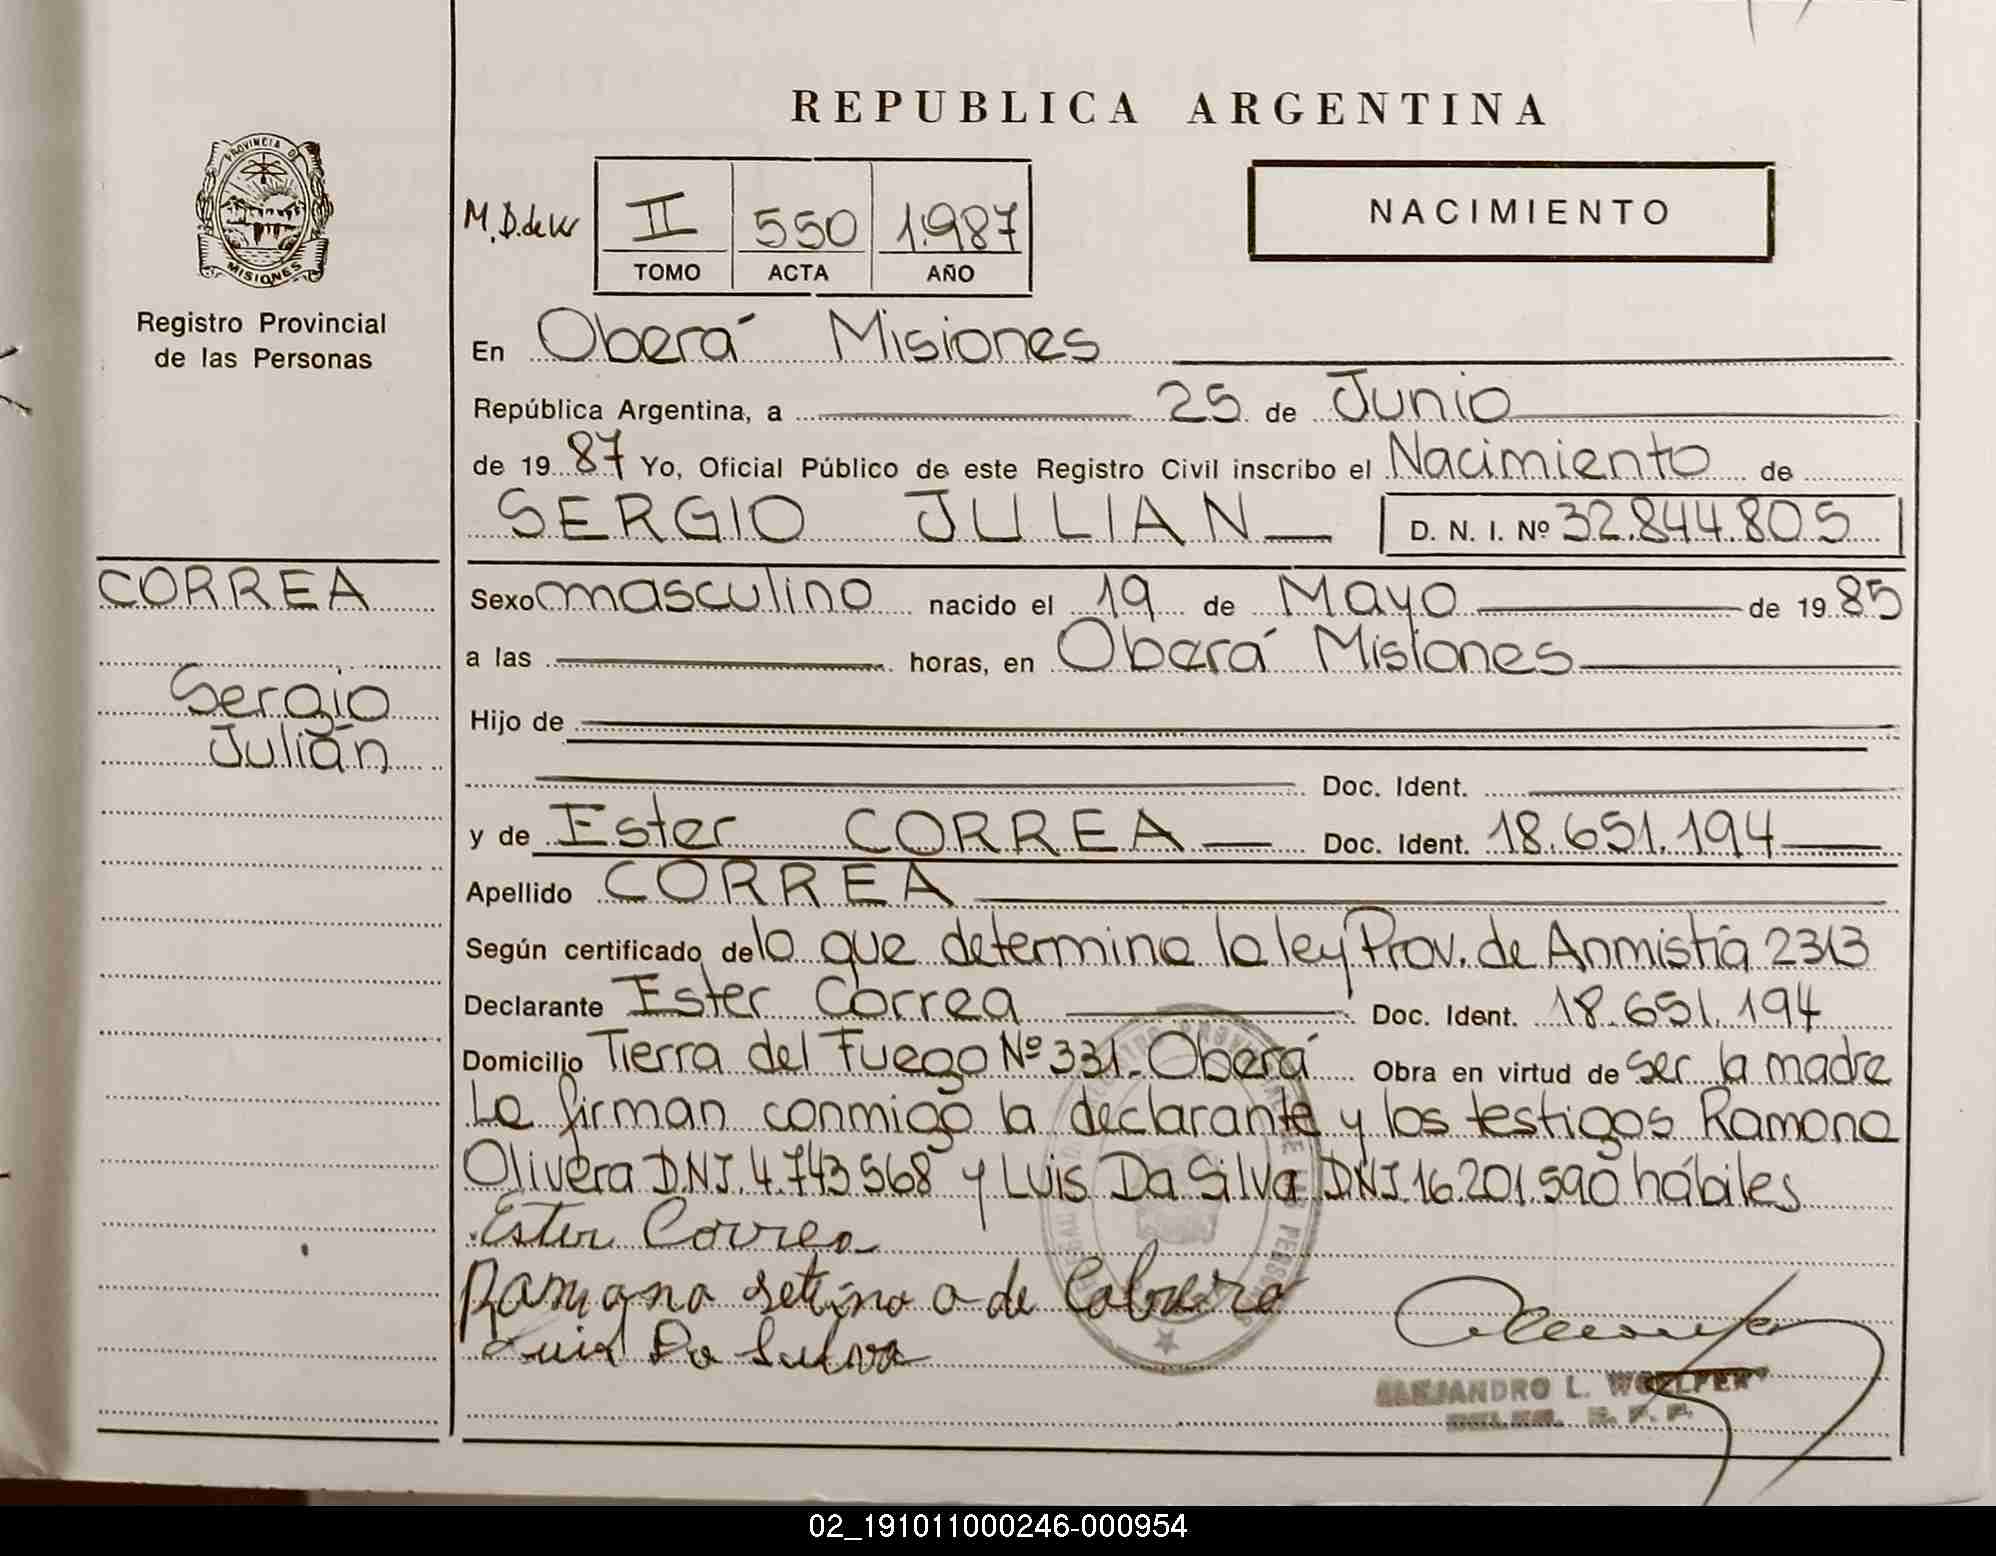 REPUBLICA ARGENTINA
PROVINCIA D
MISIONES
Registro Provincial
de las Personas
M.D.de
II 550 1.987
TOMO ACTA AÑO
NACIMIENTO
En Oberá Misiones
República Argentina, a 25 de Junio
de 19 87 Yo, Oficial Público de este Registro Civil inscribo el Nacimiento de
SERGIO JULIAN D. N. I. Nº 32.844.805
CORREA
Sergio
Julián
Sexo masculino nacido el 19 de Mayo de 19 85
a las horas, en Oberá Misiones
Hijo de
Doc. Ident.
y de Ester CORREA Doc. Ident. 18.651.194
Apellido CORREA
Según certificado de lo que determina la ley Prov. de Anmistía 2313
Declarante Ester Correa Doc. Ident. 18.651.194
Domicilio Tierra del Fuego Nº 331. Oberá Obra en virtud de ser la madre
La firman conmigo la declarante y los testigos Ramona
Olivera DNI. 4.743.568 y Luis Da Silva DNI. 16.201.590 hábiles
Ester Correa
Ramona o de Cabrera
Luis Da Silva
ALEJANDRO L. WOELFERT
02_191011000246-000954